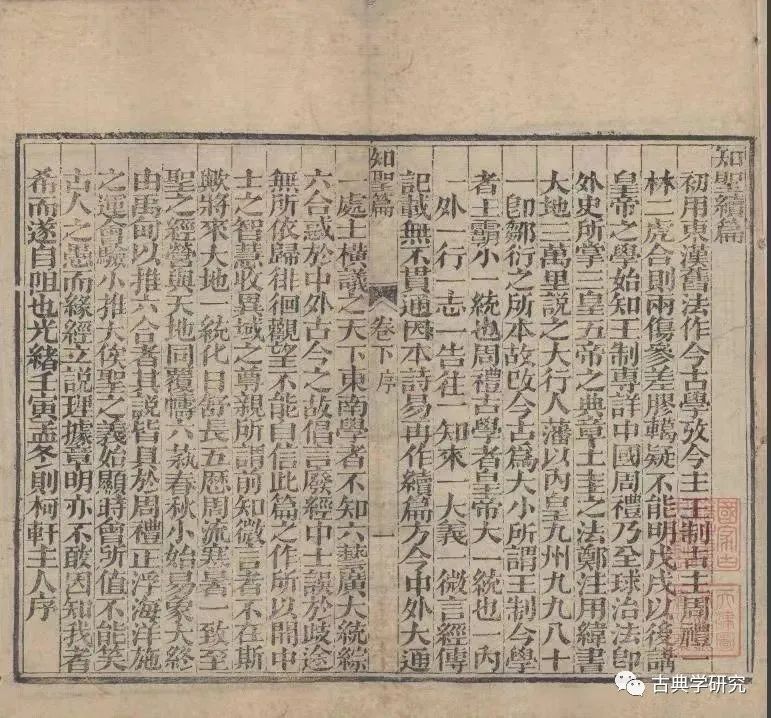 知聖續篇
初用東漢舊法作今古學攷今主王制古主周禮一
林二虎合則兩傷參差膠轕疑不能明戊戌以後講
皇帝之學始知王制專詳中國周禮乃全球治法卽
外史所掌三皇五帝之典章土圭之法鄭注用緯書
大地三萬里說之大行人藩以內皇九州九九八十
一卽鄒衍之所本故改今古爲大小所謂王制今學
者王霸小一統也周禮古學者皇帝大一統也一內
一外一行一志一告往一知來一大義一微言經傳
記載無不貫通因本詩易再作續篇方今中外大通
知聖篇 卷下序 一
一處士橫議之天下東南學者不知六埶廣大統綜
六合惑於中外古今之故倡言廢經中士誤於歧途
無所依歸徘徊觀望不能自信此篇之作所以開中
士之智慧收異域之尊親所謂前知微言者不在斯
歟將來大地一統化日舒長五歷周流寒暑一致至
聖之經營與天地同覆幬六埶春秋小始易象大終
由禹甸以推六合者其說皆具於周禮正浮海洋施
之運會驗小推大俟聖之義始顯時會所值不能笑
古人之愚而緣經立說理據章明亦不敢因知我者
希而遂自阻也光緒壬寅孟冬則柯軒主人序
古典学研究